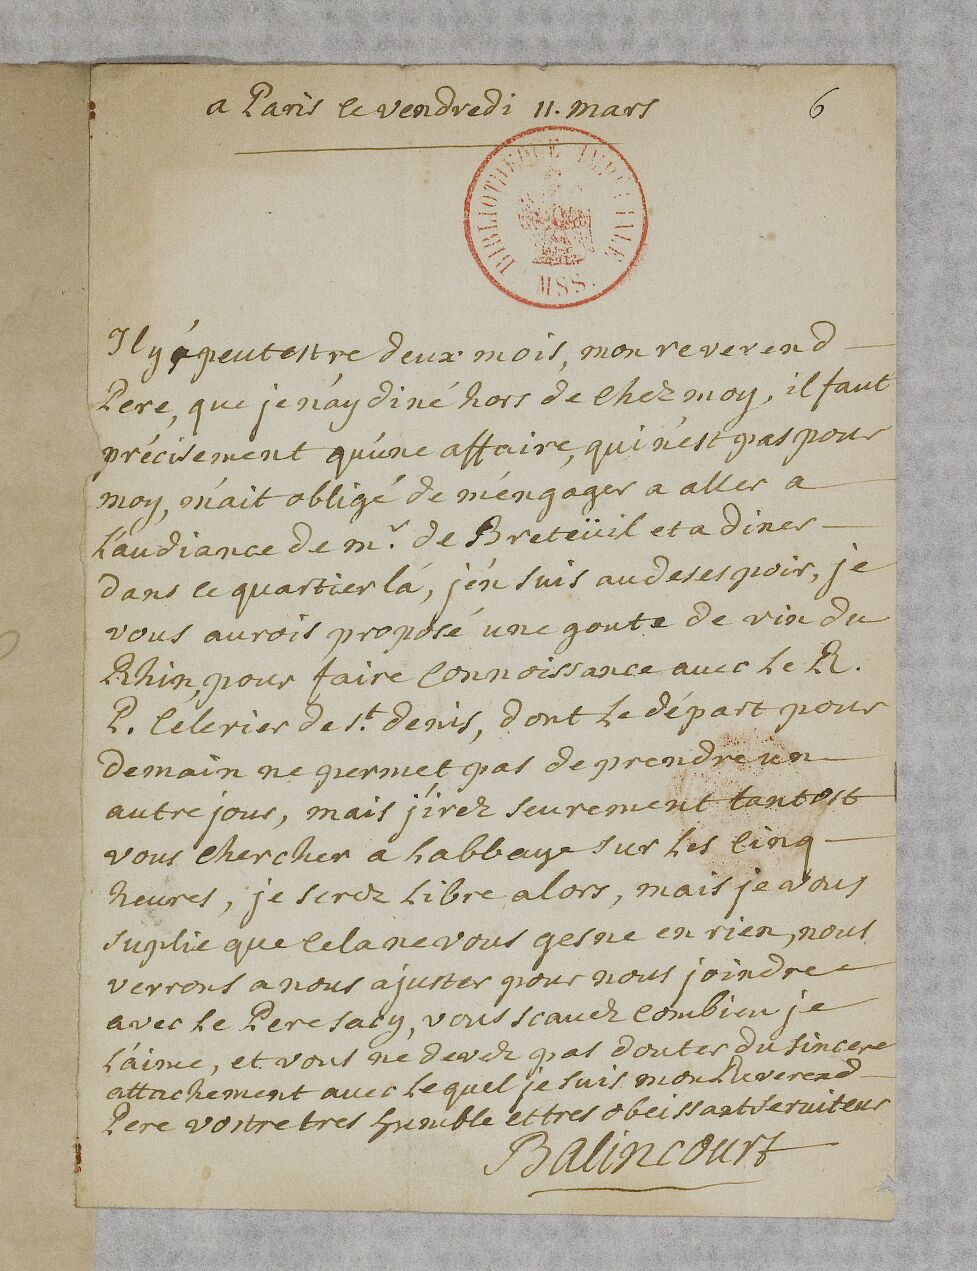 a Paris le vendredi 11. mars
6
BIBLIOTHEQUE IMPERIALE
MSS.
Il y á peutestre deux mois, mon reverend
Pere, que je n'ay diné hors de chez moy, il faut
précisement qu'une affaire, qui n'est pas pour
moy, m'ait obligé de m'engager a aller a
l'audiance de mr. de Breteüil et a diner
dans ce quartier lá, j'en suis au desespoir, je
vous aurois proposé une goute de vin du
Rhin, pour faire connoissance avec le R.
P. Celerier de st. denis, dont le départ pour
demain ne permet pas de prendre un
autre jour, mais j'irez seurement tantost
vous chercher a l'abbaye sur les cinq
heures, je serez libre alors, mais je vous
suplie que cela ne vous gesne en rien, nous
verrons a nous ajuster pour nous joindre
avec le Pere sacy, vous scavez combien je
l'aime, et vous ne devez pas douter du sincere
attachement avec lequel je suis mon Reverend
Pere vostre tres humble et tres obeissant serviteur
Balincourt